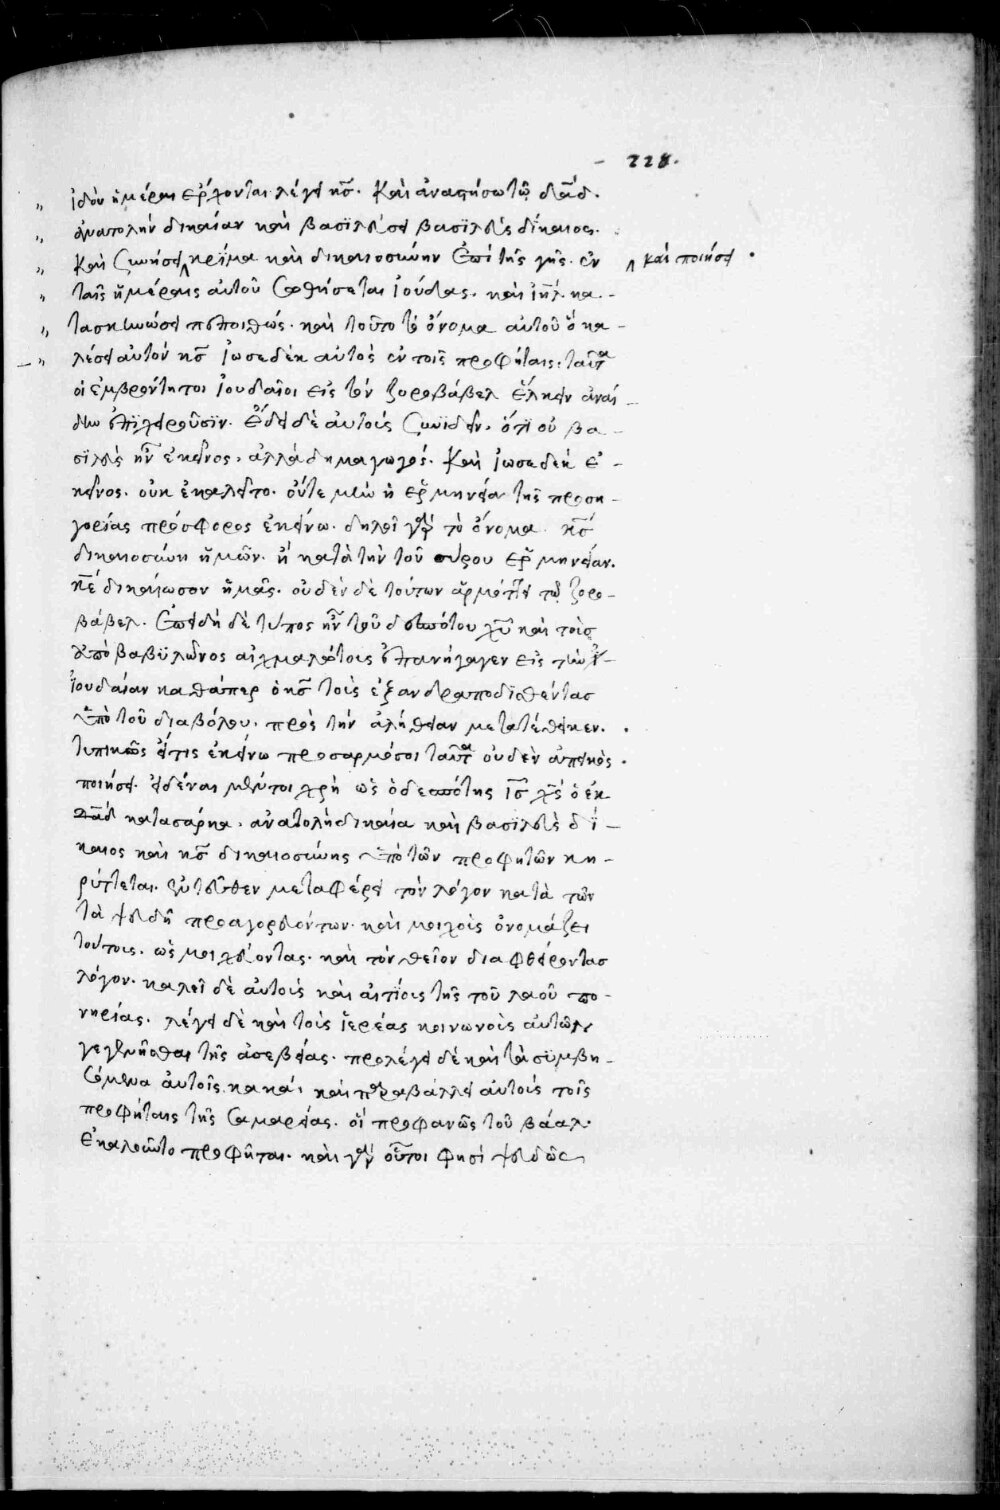 228.
ἰδοὺ ἡμέραι ἔρχονται λέγει κ̅ς̅. καὶ ἀναστήσω τῷ δα̅δ̅.
ἀνατολὴν δικαίαν καὶ βασιλεύσει βασιλεὺς δίκαιος.
καὶ συνήσει ‸ κρίμα καὶ δικαιοσύνην ἐπὶ τῆς γῆς. ἐν ‸ καὶ ποιήσει
ταῖς ἡμέραις αὐτοῦ σωθήσεται ἰούδας. καὶ ἰη̅λ̅ κα-
τασκηνώσει πεποιθώς. καὶ τοῦτο τὸ ὄνομα αὐτοῦ ὃ κα-
λέσει αὐτὸν κ̅ς̅ ἰωσεδὲκ αὐτὸς ἐν τοῖς προφήταις. ταῦτα
οἱ ἐμβρόντητοι ἰουδαῖοι εἰς τὸν ζοροβάβελ ἕλκειν ἀναι-
δῶς ἐπιχειροῦσιν. ἔδει δὲ αὐτοὺς συνιδεῖν. ὅτι οὐ βα-
σιλεὺς ἦν ἐκεῖνος. ἀλλὰ δημαγωγός. καὶ ἰωσεδὲκ ἐ-
κεῖνος. οὐκ ἐκαλεῖτο. οὔτε μὴν ἡ ἑρμηνεία τῆς προση-
γορίας πρόσφορος ἐκείνω. δηλοῖ γὰρ τὸ ὄνομα κ̅ς̅
δικαιοσύνη ἡμῶν. ἢ κατὰ τὴν τοῦ σύρου ἑρμηνείαν.
κ̅ε̅ δικαίωσον ἡμᾶς. οὐδὲν δὲ τούτων ἁρμόττει τῷ ζορο-
βάβελ. ἐπειδὴ δὲ τύπος ἦν τοῦ δεσπότου χ̅υ̅ καὶ τοὺς
ἀπὸ βαβυλῶνος αἰχμαλώτους ἐπανήγαγεν εἰς τὴν
ἰουδαίαν καθάπερ ὁ κ̅ς̅ τοὺς ἐξανδραποδισθέντας
ὑπὸ τοῦ διαβόλου. πρὸς τὴν ἀλήθειαν μετατέθεικεν.
τυπικῶς εἴ τις ἐκείνω προσαρμόσοι ταῦτα οὐδὲν ἀπεικὸς
ποιήσει. εἰδέναι μέντοι χρὴ ὡς ὁ δεσπότης ι̅ς̅ χ̅ς̅ ὁ ἐκ
δα̅δ̅ κατὰ σάρκα. ἀνατολὴ δικαία καὶ βασιλεὺς δί-
καιος καὶ κ̅ς̅ δικαιοσύνης ὑπὸ τῶν προφητῶν κη-
ρύττεται. ἐντεῦθεν μεταφέρει τὸν λόγον κατὰ τῶν
τὰ ψευδῆ προαγορευόντων. καὶ μοιχοὺς ὀνομάζει
τούτους. ὡς μοιχεύοντας. καὶ τὸν θεῖον διαφθείροντας
λόγον. καλεῖ δὲ αὐτοὺς καὶ αἰτίους τῆς τοῦ λαοῦ πο-
νηρίας. λέγει δὲ καὶ τοὺς ἱερέας κοινωνοὺς αὐτῶν
γεγενῆσθαι τῆς ἀσεβείας. προλέγει δὲ καὶ τὰ συμβη-
σόμενα αὐτοῖς κακά. καὶ παραβάλλει αὐτοὺς τοῖς
προφήταις τῆς σαμαρείας. οἳ προφανῶς τοῦ βάαλ.
ἐκαλοῦντο προφῆται. καὶ γὰρ οὗτοι φησὶ ψευδῶς